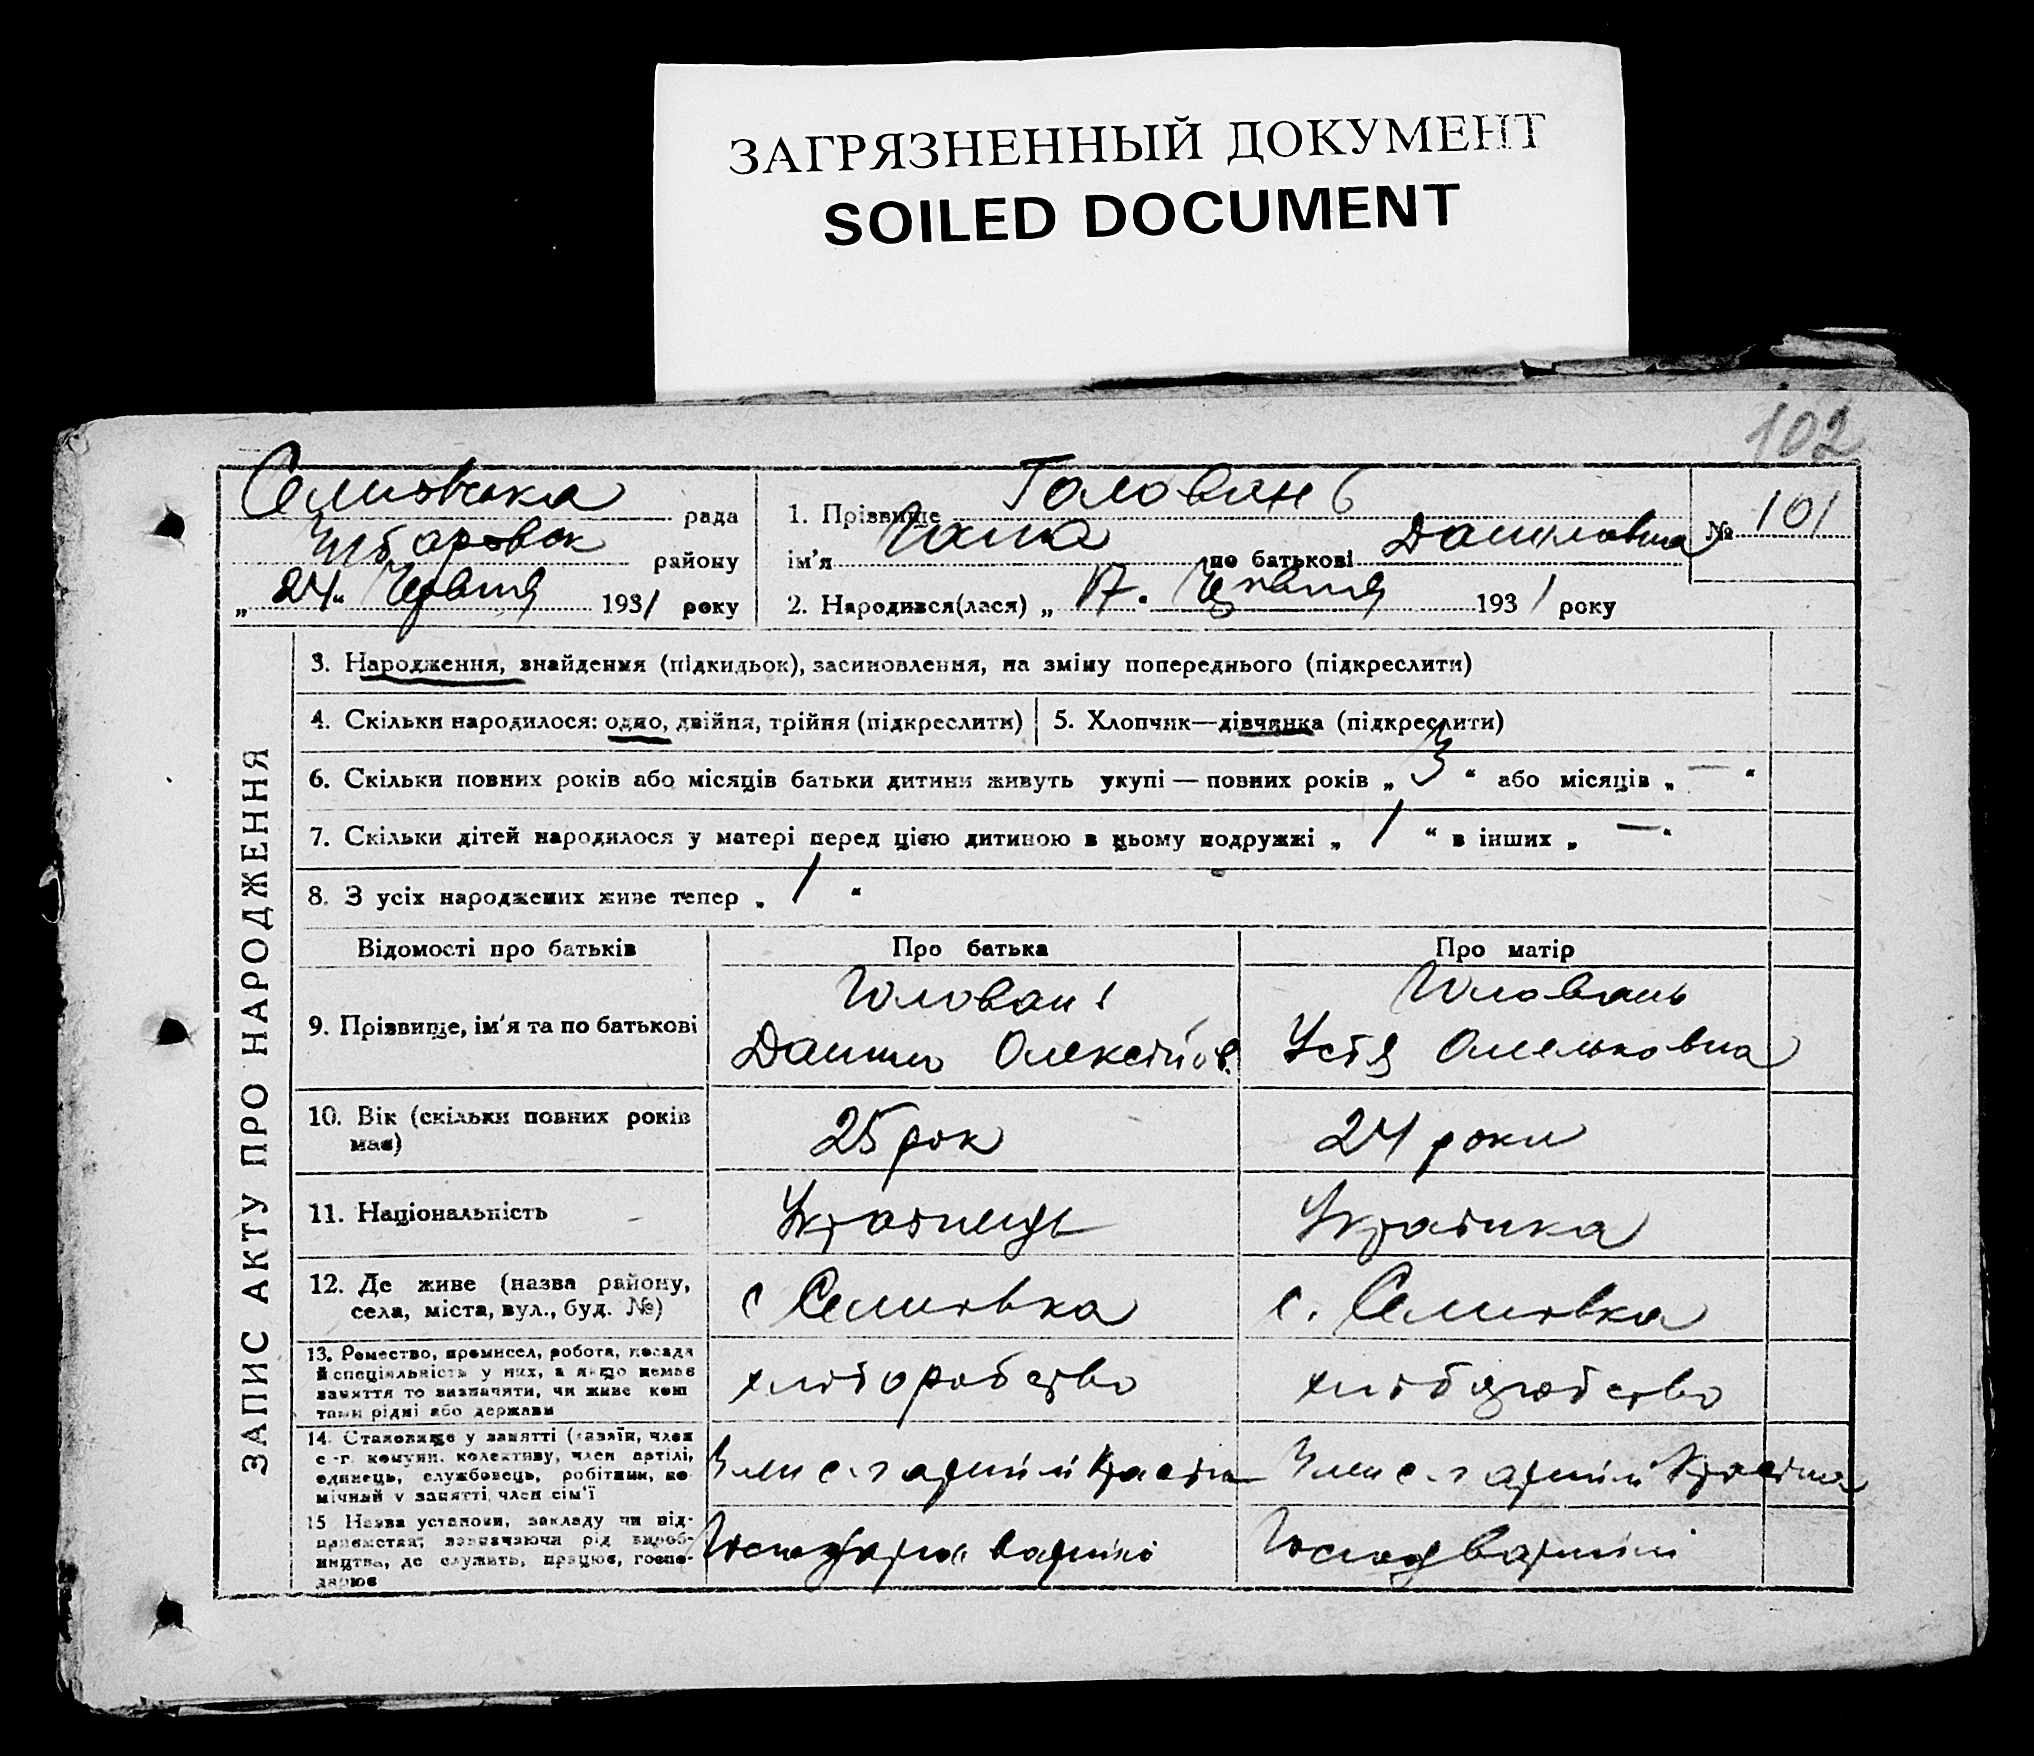 ЗАГРЯЗНЕННЫЙ ДОКУМЕНТ
SOILED DOCUMENT
102
рада
району
„ 24 “ Червня 1931 року
1. Прізвище Головань
ім'я по батькові Даниловна
№ 101
2. Народився(лася) „ 17 . Червня 1931 року
ЗАПИС АКТУ ПРО НАРОДЖЕННЯ
3. Народження, знайдення (підкидьок), засиновлення, на зміну попереднього (підкреслити)
4. Скільки народилося: одно, двійня, трійня (підкреслити)
5. Хлопчик—дівчинка (підкреслити)
6. Скільки повних років або місяців батьки дитини живуть укупі — повних років „ 3 “ або місяців „ — “
7. Скільки дітей народилося у матері перед цією дитиною в цьому подружжі „ 1 “ в інших „ — “
8. З усіх народжених живе тепер „ 1 “
Відомості про батьків Про батька Про матір
9. Прізвище, ім'я та по батькові
Головань
Данило Олексійов.
Головань
Устя Омельковна
10. Вік (скільки повних років
має)
25 рок
24 роки
11. Національність
Українець
Українка
12. Де живе (назва району,
села, міста, вул., буд. №)
с Селиовка
с. Селиовка
13. Ремество, промисел, робота, посада
й спеціяльність у них, а якщо немає
заняття то визначити, чи живе кош
тами рідні або держави
хліборобство
хліборобство
14. Становище у занятті (хазяїн, член
с.-г. комуни, колективу, член артілі,
одинець, службовець, робітник, по
мічний у занятті член сім'ї
Член с.-г артіли
Член с.-г артіли
15 Назва установи, закладу чи під-
приємства; зазначаючи рід вироб-
ництва, де служить, працює, госпо-
дарює
в артілі
в артілі